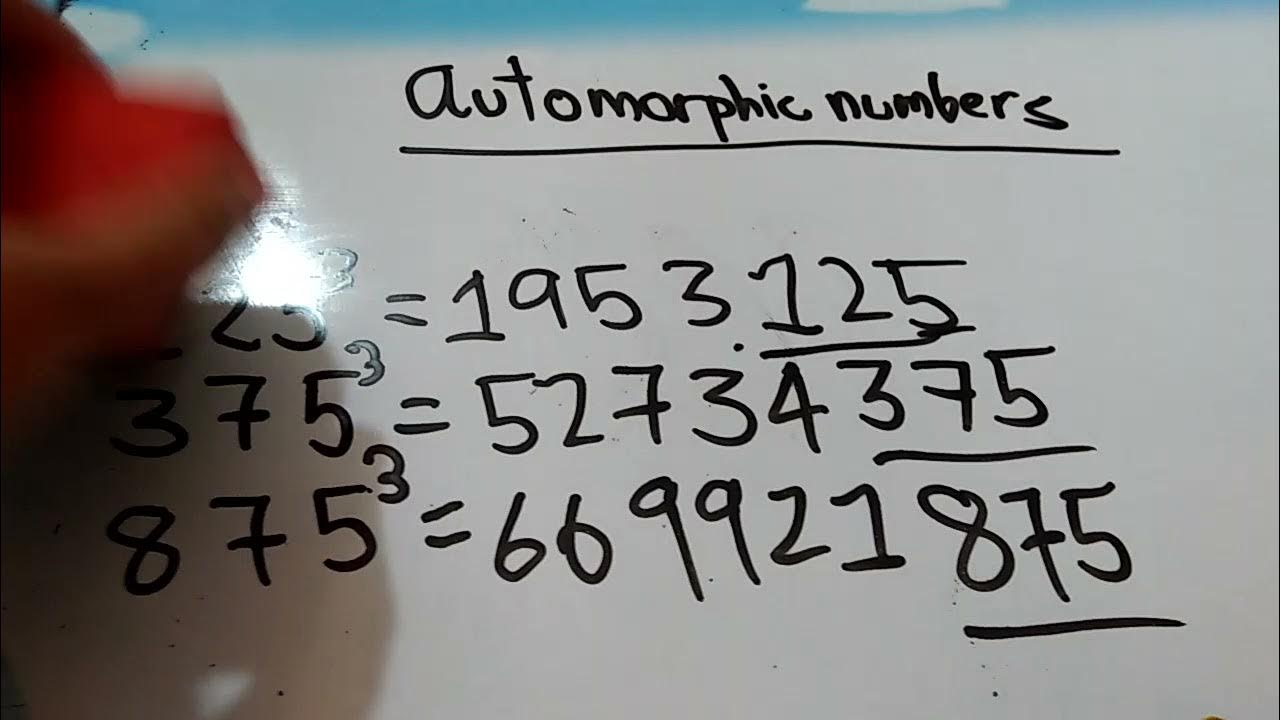 automorphic numbers
25³ = 1953125
375³ = 52734375
875³ = 669921875